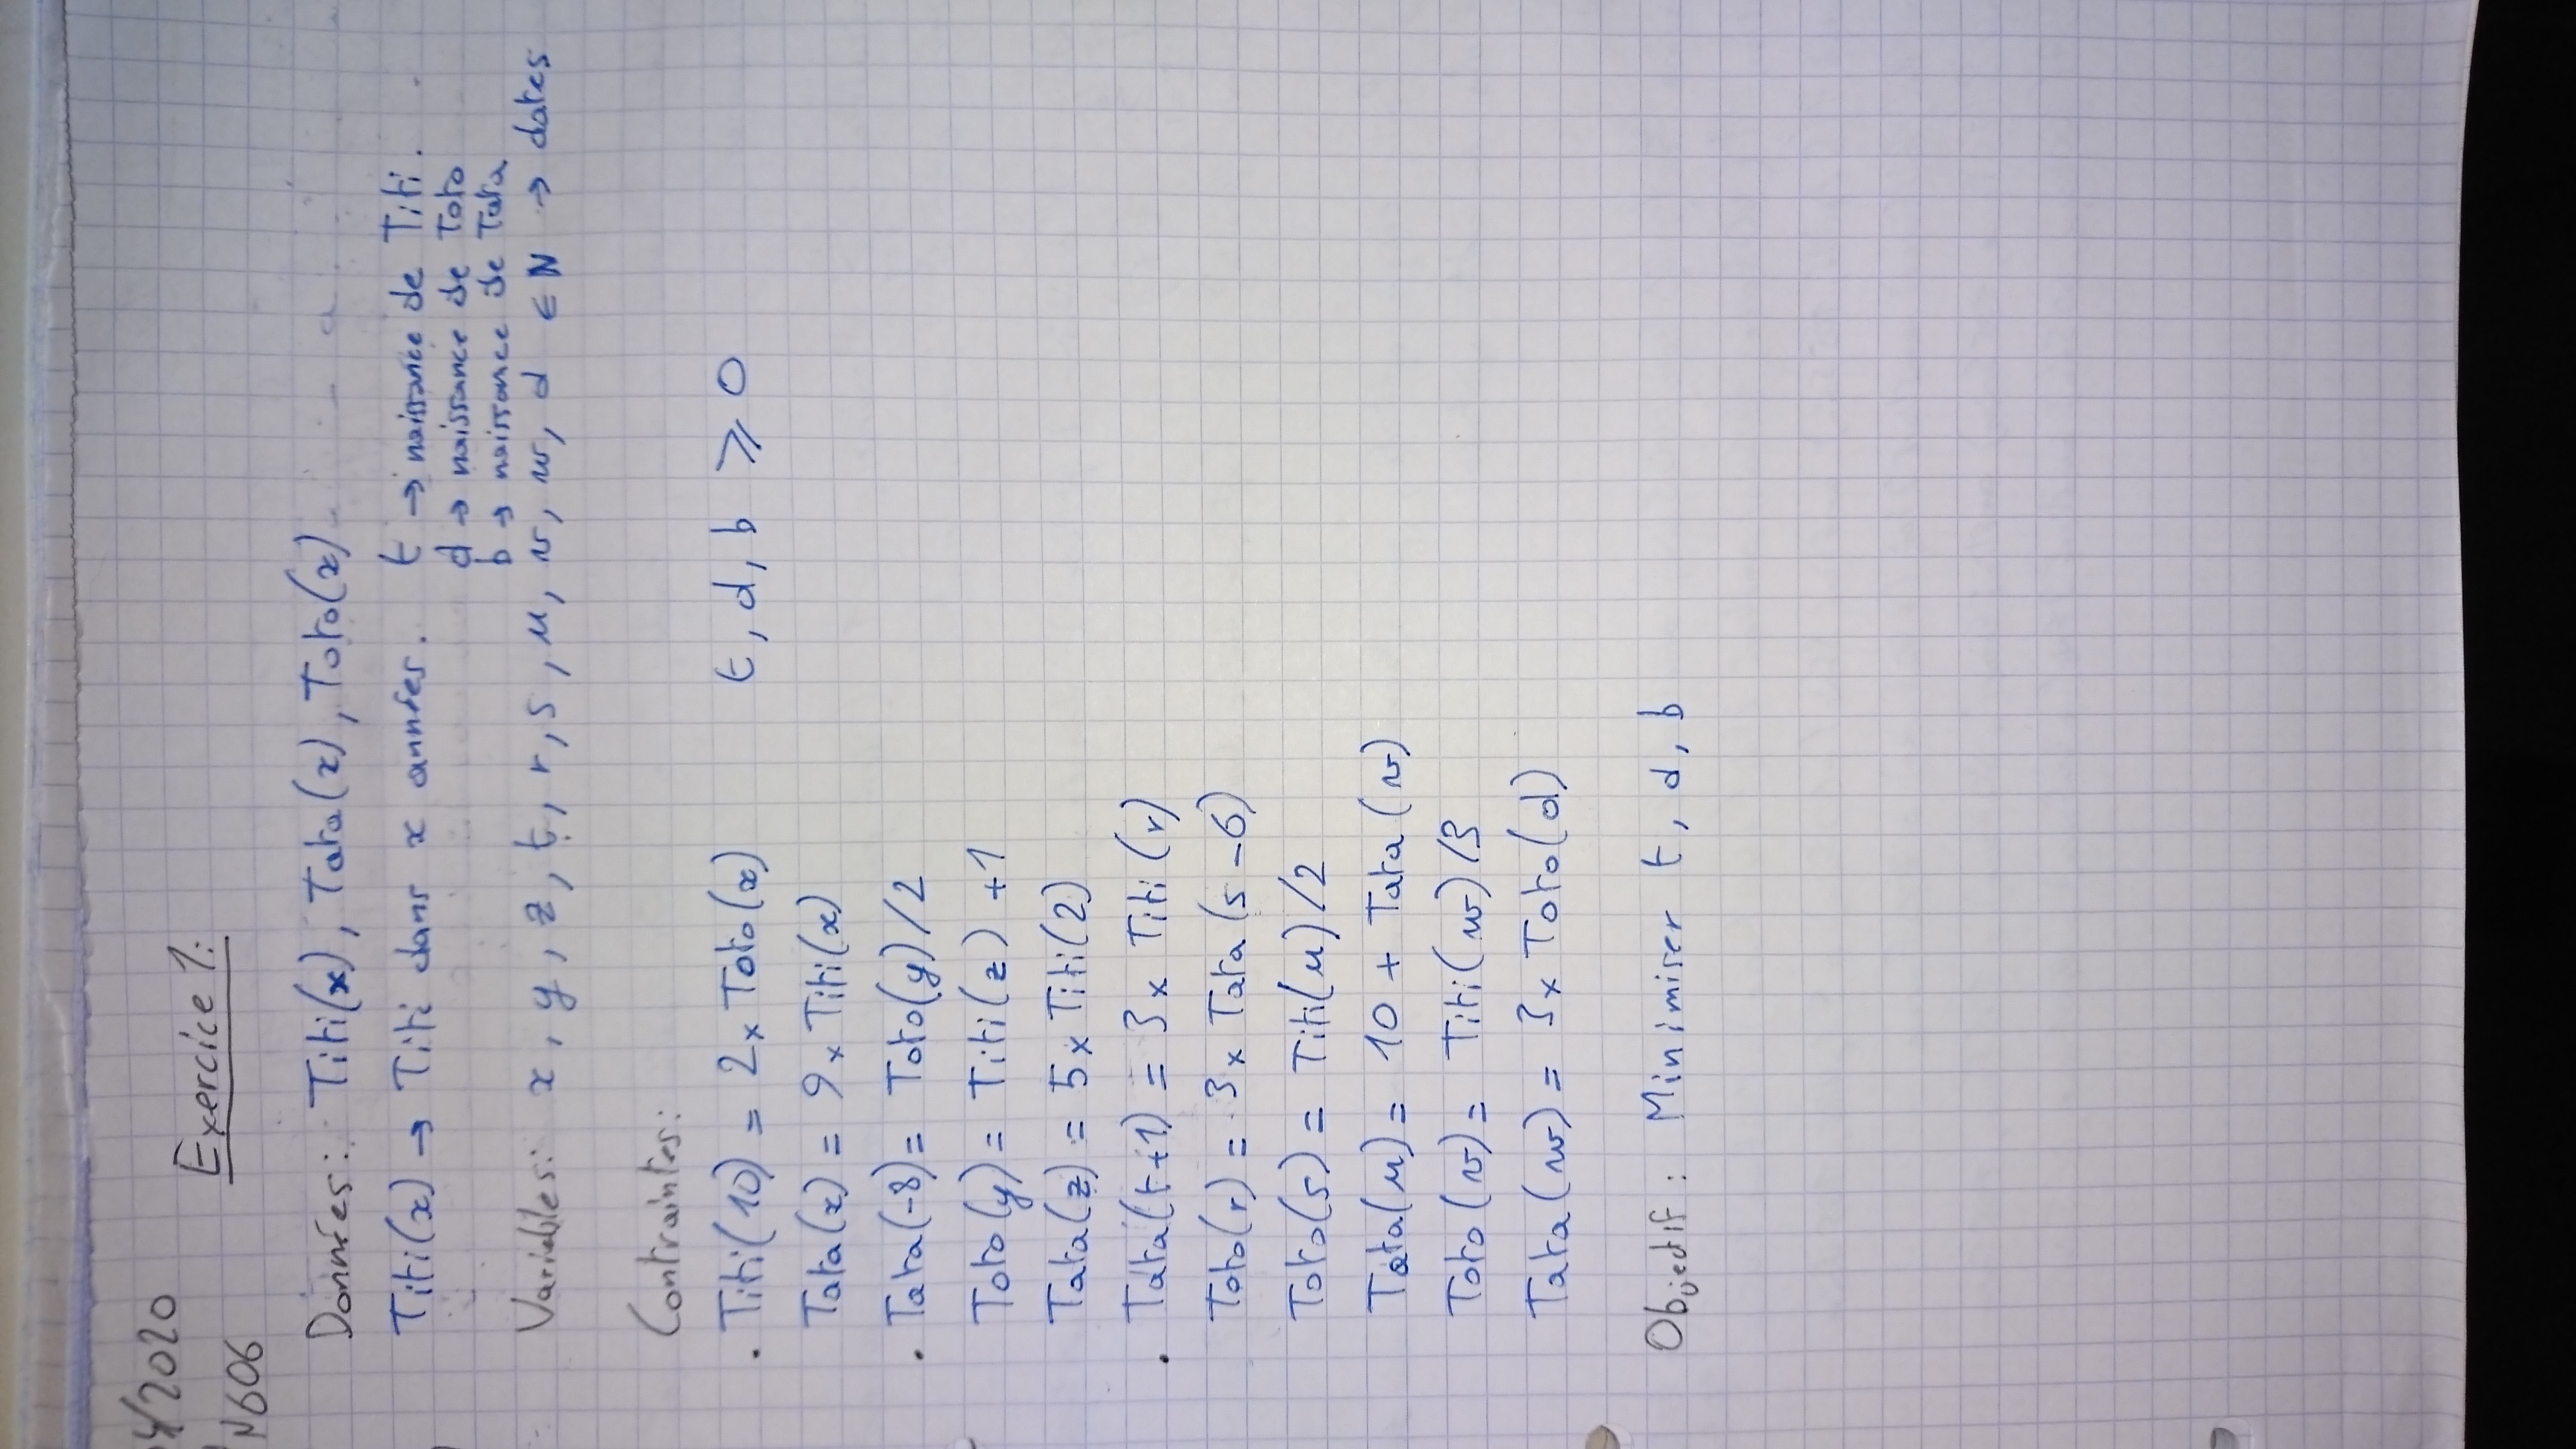 04/2020
N606
Exercice 1:
Données: Titi(x), Tata(x), Toto(x)
Titi(x) → Titi dans x années. t → naissance de Titi.
d → naissance de Toto
b → naissance de Tata
Variables: x, y, z, t, r, s, u, v, w, d ∈ N → dates
Contraintes:
. Titi(10) = 2x Toto(x) t, d, b ⩾ 0
Tata(x) = 9x Titi(x)
. Tata(-8)= Toto(y)/2
Toto(y)= Titi(z) +1
Tata(z) = 5x Titi(2)
. Tata(t+1) = 3x Titi(r)
Toto(r) = 3x Tata(s-6)
Toto(s) = Titi(u)/2
Tata(u)= 10 + Tata(v)
Toto(v)= Titi(w)/3
Tata(w) = 3x Toto(d)
Objectif: Minimiser t, d, b